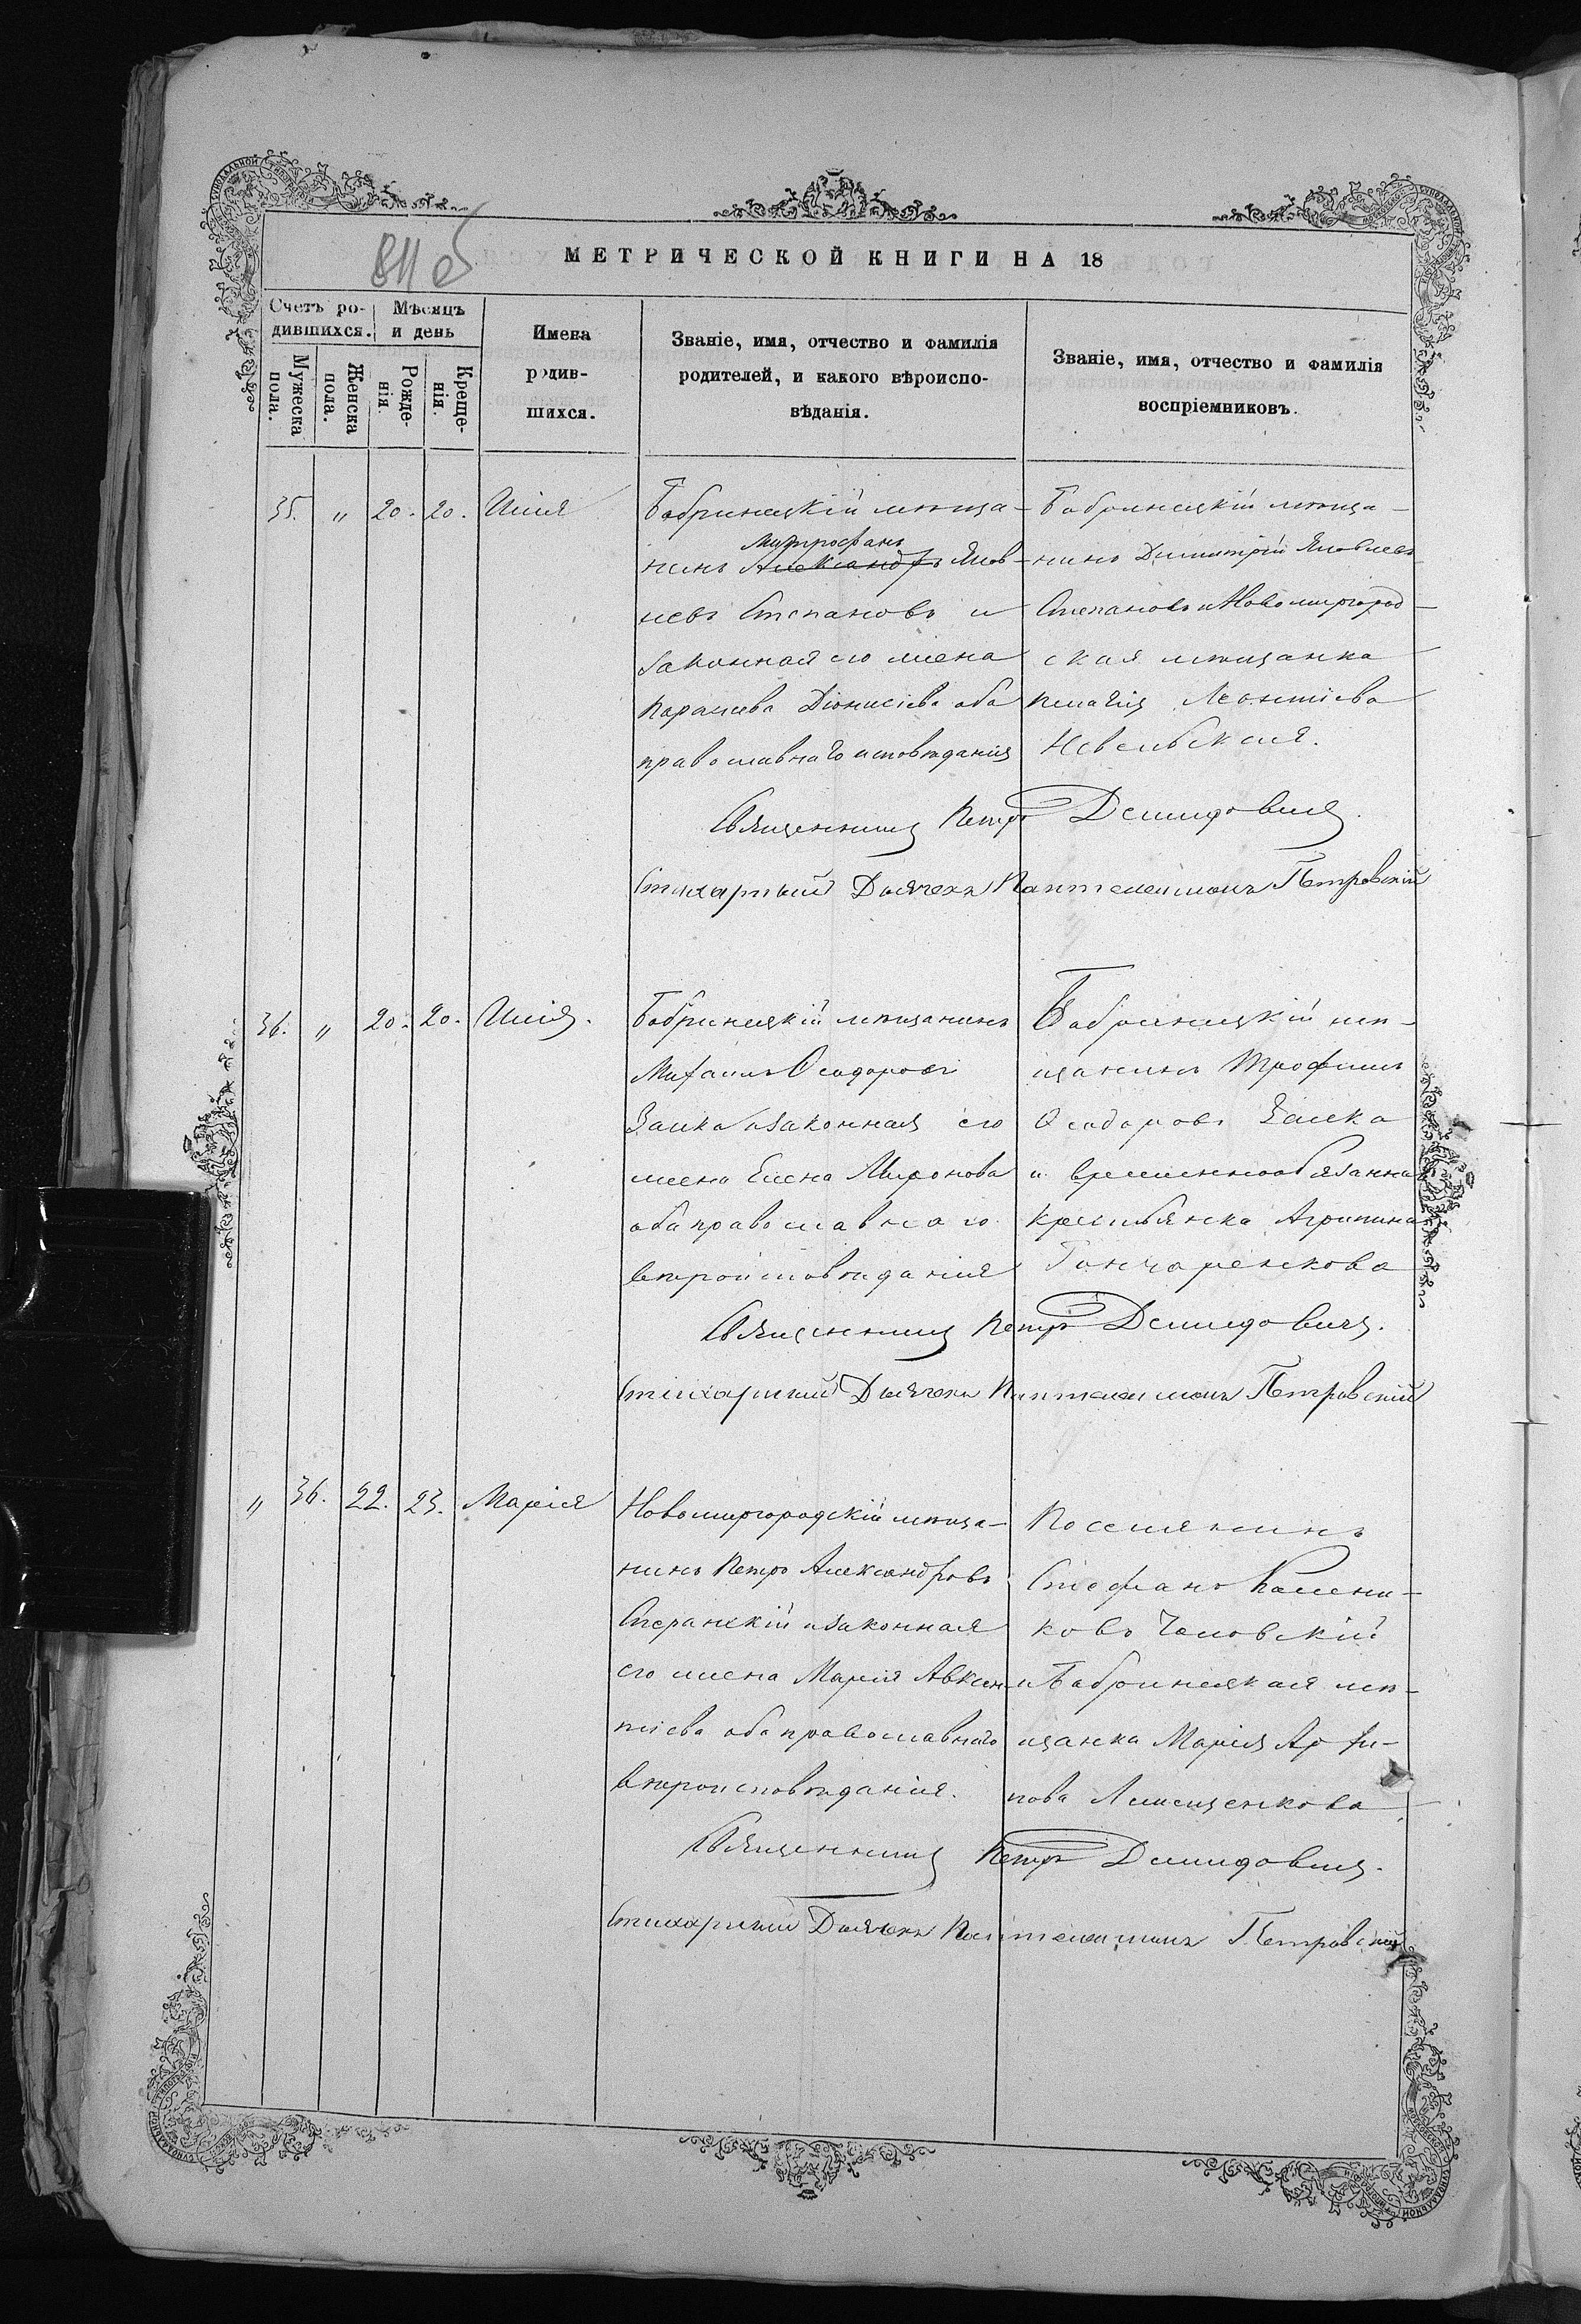 811 об
МЕТРИЧЕСКОЙ КНИГИ НА 18
Счетъ ро-
дившихся.
Мѣсяцъ
и день
Мужеска
пола.
Женска
пола.
Рожде-
нія.
Креще-
нія.
Имена
родив-
шихся.
Званіе, имя, отчество и фамилія
родителей, и какого вѣроиспо-
вѣданія.
Званіе, имя, отчество и фамилія
воспріемниковъ.
35. " 20. 20. Илія
Бобринецкій мѣща-
Митрофанъ
нинъ Александръ Яков-
левъ Степановъ и
законная его жена
Параскева Діонисіева оба
православнаго исповѣданія
Бобринецкій мѣща-
нинъ Димитрій Яковлевъ
Степановъ и Новомиргород-
ская мѣщанка
Пелагія Леонтіева
Невельская.
Священникъ Петръ Демидовичъ.
Стихарный Дьячекъ Пантелеимонъ Петровскій
36. " 20. 20. Илія.
Бобринецкій мѣщанинъ
Михаилъ Ѳеодоровъ
Заика и законная его
жена Елена Миронова
оба православнаго
вѣроисповѣданія
Бобринецкій мѣ-
щанинъ Трофимъ
Ѳеодоровъ Заика
и временнообязанная
крестьянка Агрипина
Гончаренкова
Священникъ Петръ Демидовичъ.
Стихарный Дьячекъ Пантелеимонъ Петровскій
" 36. 22. 23. Марія
Новомиргородскій мѣща-
нинъ Петръ Александровъ
Сперанскій и законная
его жена Марія Авксен-
тіева оба православнаго
вѣроисповѣданія.
Поселянинъ
Стефанъ
ковъ
и Бобринецкая мѣ-
щанка Марія
пова
Священникъ Петръ Демидовичъ.
Стихарный Дьячекъ Пантелеимонъ Петровскій